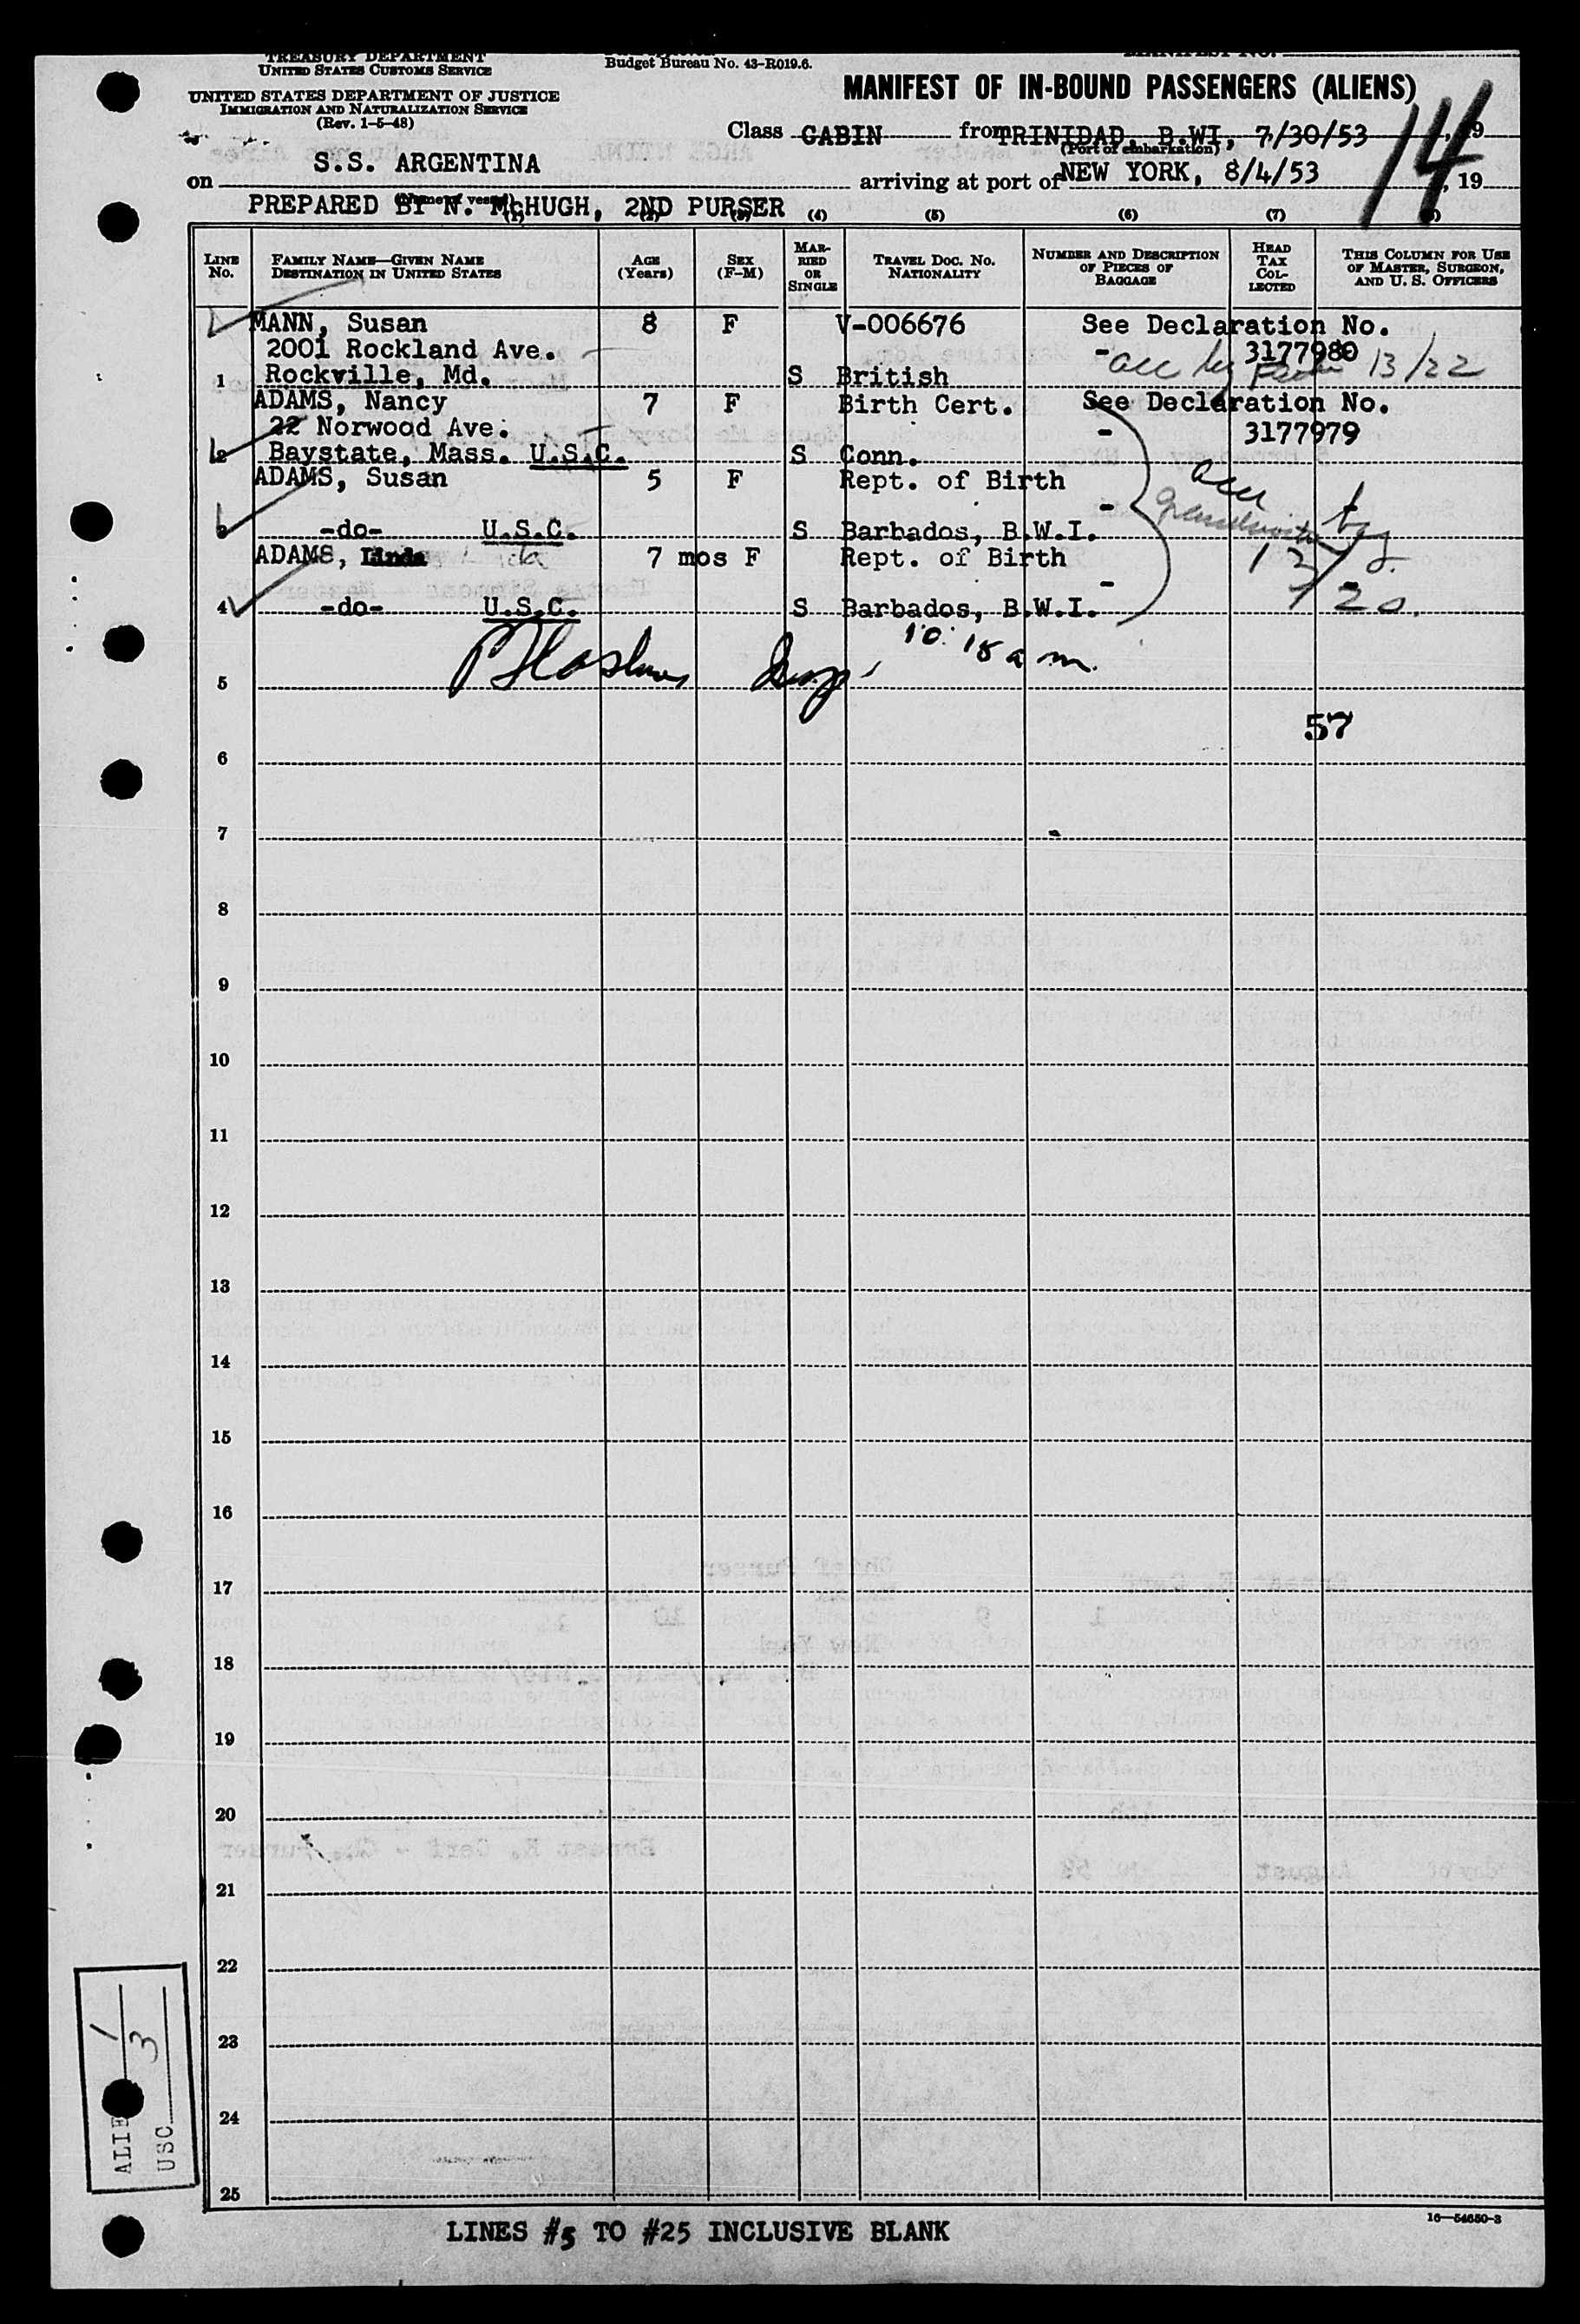 TREASURY DEPARTMENT
UNITED STATES CUSTOMS SERVICE
UNITED STATES DEPARTMENT OF JUSTICE
IMMIGRATION AND NATURALIZATION SERVICE
(Rev. 1-5-48)
Budget Bureau No. 43-R019.6.
MANIFEST NO.
MANIFEST OF IN-BOUND PASSENGERS (ALIENS)
14
Class CABIN from TRINIDAD, B.WI, 7/30/53, 19
(Port of embarkation)
on S.S. ARGENTINA arriving at port of NEW YORK, 8/4/53, 19
(Name of vessel)
PREPARED BY N. McHUGH, 2ND PURSER
(1) (2) (3) (4) (5) (6) (7) (8)
LINE No.
FAMILY NAME—GIVEN NAME
DESTINATION IN UNITED STATES
AGE (Years)
SEX (F-M)
MARRIED OR SINGLE
TRAVEL DOC. NO. NATIONALITY
NUMBER AND DESCRIPTION OF PIECES OF BAGGAGE
HEAD TAX COLLECTED
THIS COLUMN FOR USE OF MASTER, SURGEON, AND U. S. OFFICERS
MANN, Susan 8 F V-006676 See Declaration No.
2001 Rockland Ave. - 3177980
1 Rockville, Md. S British
acc by 13/22
ADAMS, Nancy 7 F Birth Cert. See Declaration No.
22 Norwood Ave. - 3177979
2 Baystate, Mass. U.S.C. S Conn.
ADAMS, Susan 5 F Rept. of Birth
-
3 -do- U.S.C. S Barbados, B.W.I.
acc by
grandmother
13/20
ADAMS, Linda 7 mos F Rept. of Birth
-
4 -do- U.S.C. S Barbados, B.W.I.
10:18 a m.
5
57
6
7
8
9
10
11
12
13
14
15
16
17
18
19
20
21
22
23
24
25
ALIE 1
USC 3
LINES #5 TO #25 INCLUSIVE BLANK
16—54650-3